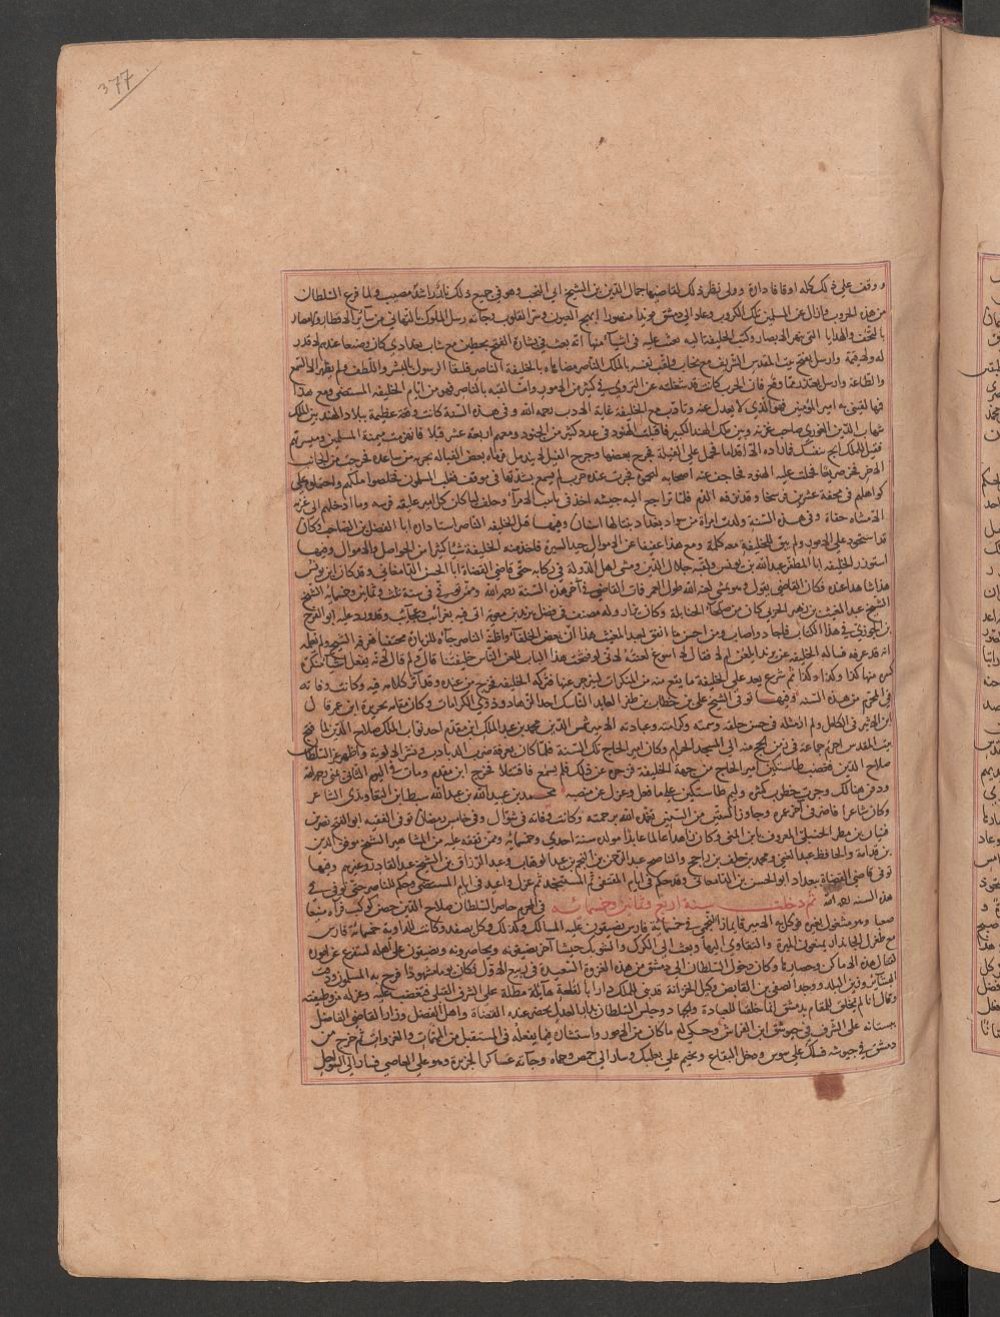 ٣٧٧
ووقف على ذلك كله اوقافا دارة وولى نظر ذلك لقاضيها جمال الدين بن الشيخ ابي النجيب وهو في جميع ذلك تائد راشد مصيب ولما فرغ السلطان
من هذه الحروب فازال عن المسلمين تلك الكروب وعاد الى دمشق مؤيدا منصورا ابهج العيون وسر القلوب وجآءته رسل الملوك بالتهاني من سآئر الاقطار والامصار
بالتحف والهدايا التي تبهر الابصار وكتب الخليفة اليه يعتب عليه في اشيآء منها انه بعث في بشارة الفتح بحطين مع شاب بغدادي كان وضيعا عندهم لا قدر
له ولا قيمة وارسل بفتح بيت المقدس الشريف مع نجاب ولقب نفسه بالملك الناصر مضاهاة بالخليفة الناصر فتلقا الرسول بالبشر واللطف ولم يظهر الا السمع
والطاعة وارسل يعتذر مما وقع فان الحرب كانت قد شغلته عن التروي في كثير من الامور واما لقبه بالناصر فهو من ايام الخليفة المستضي ومع هذا
فمهما لقبني به امير المؤمنين فهو الذي لا يعدل عنه وتادب مع الخليفة غاية الادب رحمه الله وفي هذه السنة كانت وقعة عظيمة ببلاد الهند بين الملك
شهاب الدين الغوري صاحب غزنة وبين ملك الهند الكبير فاقبلت الهنود في عدد كثير من الجنود ومعهم اربعة عشر فيلا فانهزمت ميمنة المسلمين وميسرتهم
فقيل للملك انج بنفسك فما زاده الا اقداما فحمل على الفيلة فجرح بعضها وجرح الفيل لا يندمل فرماه بعض الفيالة بحربة من ساعده فخرجت من الجانب
الاخر فخر صريعا فحملت عليه الهنود فجاحف عنه اصحابه
كواهلهم في محفة عشرين فرسخا وقد نزفه الدم فلما تراجع اليه جيشه اخذ في تانيب الامرآء وحلف لياكلن كل امير عليقه فرسه وما ادخلهم الى غزنة
الا مشاه حفاة وفي هذه السنة ولدت امراة من سواد بغداد بنتا لها اسنان وفيها قتل الخليفة الناصر استاد داره ابا الفضل بن الصاحب وكان
قد استحوذ على الامور ولم يبق للخليفة معه كلمة ومع هذا عفيفا عن الاموال جيد السيرة فاخذ منه الخليفة شيئا كثيرا من الحواصل والاموال وفيها
استوزر الخليفة ابا المظفر عبد الله بن يونس ولقبه جلال الدين ومشى اهل الدولة في ركابه حتى قاضي القضاة ابا الحسن الدامغاني وقد كان ابن يونس
هذا شاهدا عنده فكان القاضي يقول وهو يمشي لعن الله طول العمر فمات القاضي في آخر هذه السنة رحمه الله وممن توفي في سنة ثلث وثمانين وخمسمائة الشيخ
الشيخ عبد المغيث بن زهير الحربي كان من صلحآء الحنابلة وكان يزار وله مصنف في فضل يزيد بن معوية اتى فيه بغرائب وعجائب وقد رد عليه ابو الفرج
بن الجوزي في هذا الكتاب فاجاد واصاب ومن احسن ما اتفق لعبد المغيث هذا ان بعض الخلفآء واظنه الناصر جآءه للزيارة مختفيا فعرفه الشيخ ولم يعلمه
انه قد عرفه فساله الخليفة عن يزيد ايلعن ام لا فقال لا اسوغ لعنه لاني لو فتحت هذا الباب للعن الناس خليفتنا قال ولم قال لانه يفعل اشيآء منكرة
كثيرة منها كذا وكذا وكذا ثم شرع يعد على الخليفة ما يقع منه من المنكرات لينزجر عنها فتركه الخليفة وخرج من عنده وقد اثر كلامه فيه وكانت وفاته
في المحرم من هذه السنة وفيها توفي الشيخ علي بن خطاب بن ظفر العابد الناسك احد الزهاد وذوي الكرامات وكان مقامه بجزيرة ابن عمر قال
ابن الاثير في الكامل ولم ار مثله في حسن خلقه وسمته وكرامته وعبادته الامير شمس الدين محمد بن عبد الملك ابن مقدم احد نواب الملك صلاح الدين لما فتح
بيت المقدس احرم جماعة في زمن الحج منه الى المسجد الحرام وكان امير الحاج تلك السنة فلما كان بعرفة ضرب الدبادب ونشر الالوية واظهر عز السلطان
صلاح الدين فغضب طاستكين امير الحاج من جهة الخليفة فزجره عن ذلك فلم يسمع فاقتتلا فجرح ابن مقدم ومات في اليوم الثاني بمنى رحمه الله
ودفن هنالك وجرت خطوب كثيرة وليم طاستكين على ما فعل وعزل عن منصبه محمد بن عبيد الله بن عبد الله سبط ابن التعاويذي الشاعر
وكان شاعرا فاضر في آخر عمره وجاوز الستين من السنين تغمده الله برحمته وكانت وفاته في شوال وفي خامس رمضان توفي الفقيه ابو الفتح نصر بن
فتيان بن مطر الحنبلي المعروف بابن المني وكان زاهدا عالما عابدا مولده سنة احدى وخمسمائة وممن تفقه عليه من المشاهير الشيخ موفق الدين
بن قدامة والحافظ عبد الغني ومحمد بن خلف بن راجح والناصح عبد الرحمن بن النجم بن عبد الوهاب وعبد الرزاق بن الشيخ عبد القادر وغيرهم وفيها
توفي قاضي القضاة ببغداد ابو الحسن بن الدامغاني وقد حكم في ايام المقتفي ثم المستنجد ثم عزل واعيد في ايام المستضي وحكم للناصر حتى توفي في
هذه السنه رحمه الله ثم دخلت سنة اربع وثمانين وخمسمائة في المحرم حاصر السلطان صلاح الدين حصن كوكب فرآه منيعا
صعبا وهو مشغول بغيره فوكل به الامير قايماز النجمي في خمسمائة فارس يضيقون عليه المسالك وكذلك وكل بصفد وكانت للداوية خمسمائة فارس
مع طغرل الجاندار يمنعون الميرة والتقاوي اليها وبعث الى الكرك والشوبك جيشا آخر يضيقونه ويحاصرونه ويضيقون على اهله ليتفرغ عن اموره
لقتال هذه الاماكن وحصارها وكان دخول السلطان الى دمشق من هذه الغزوة السعيدة في ربيع الاول فكان يوما مشهودا فرح به المسلمون ودقت
البشآئر وزين البلد ووجد الصفي بن القابض وكيل الخزانة قد بنى للملك دارا بالقلعة هآئلة مطلة على الشرف القبلي فغضب عليه وعزله من وظيفته
وقال انا لم نخلق للمقام بدمشق انما خلقنا للعبادة والجهاد وجلس السلطان بدار العدل فحضر عنده القضاة واهل الفضل وزار القاضي الفاضل
ببستانه على الشرف في جوسق ابن الفراش وحكى له ما كان من الامور واستشاره فيما يفعله في المستقبل من المهمات والغزوات ثم خرج من
دمشق في جيوشه فسلك على سوس ودخل البقاع وخيم على بعلبك وسار الى حمص وحماه وجآءته عساكر الجزيرة وهو على العاصي فسار الى السواحل